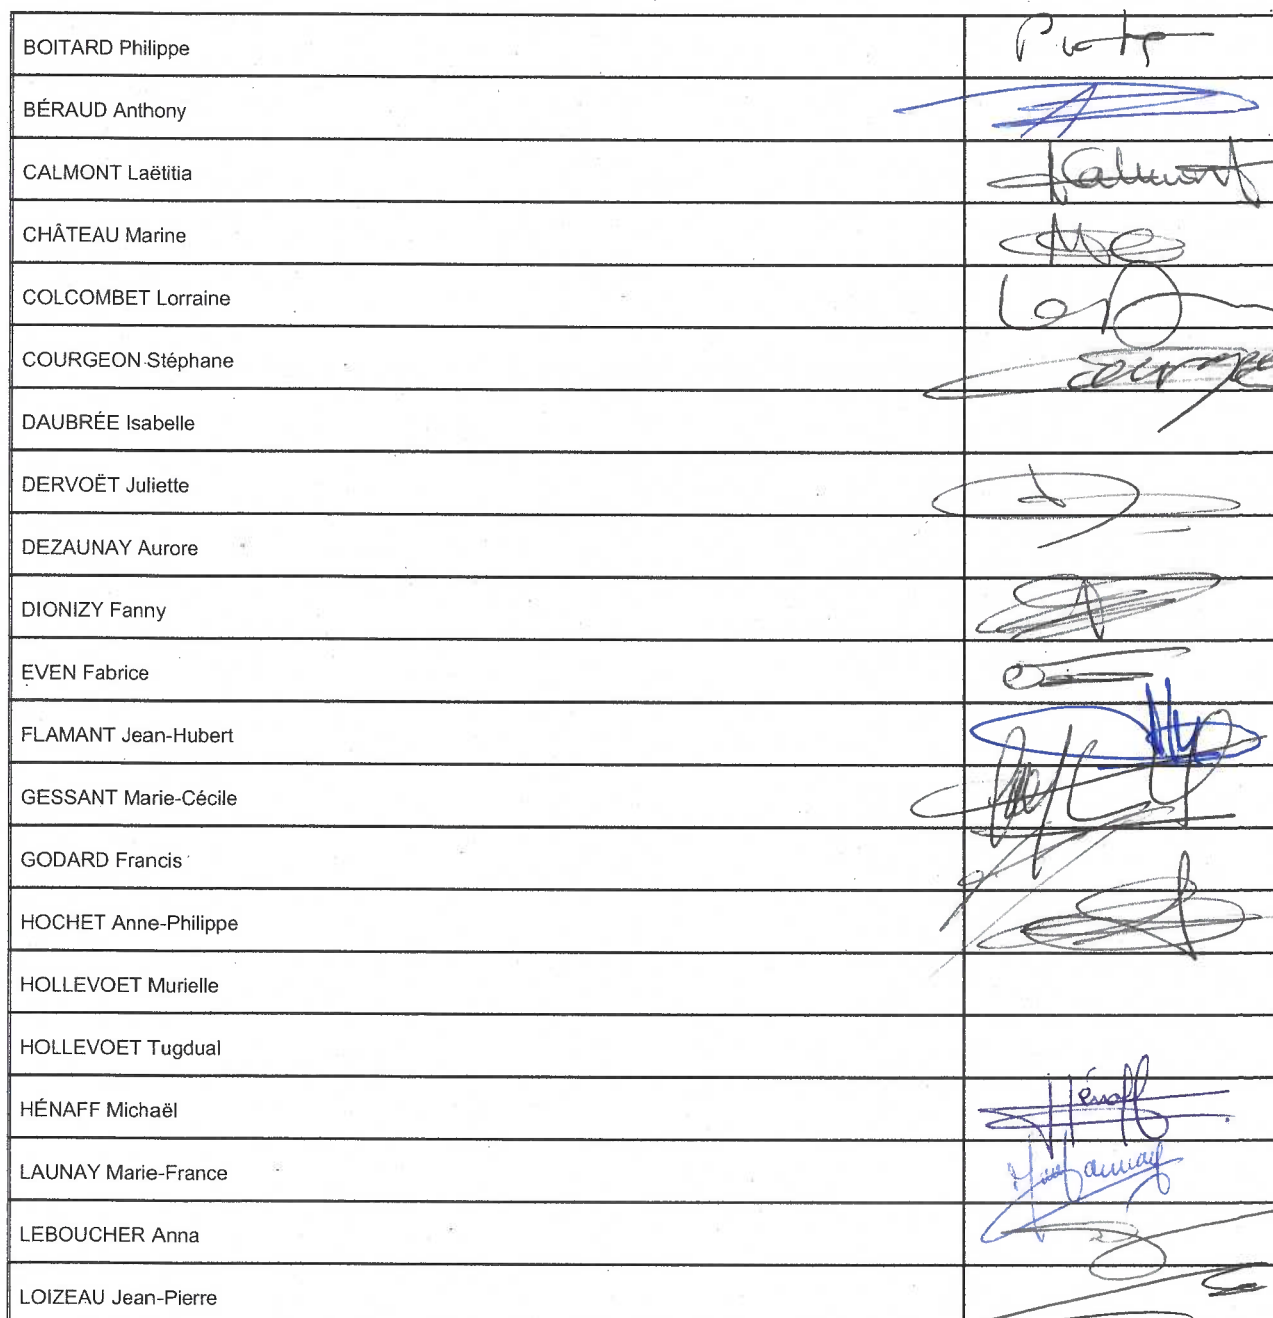 BOITARD Philippe
BÉRAUD Anthony
CALMONT Laëtitia Calmont
CHÂTEAU Marine
COLCOMBET Lorraine
COURGEON Stéphane
DAUBRÉE Isabelle
DERVOËT Juliette
DEZAUNAY Aurore
DIONIZY Fanny
EVEN Fabrice
FLAMANT Jean-Hubert
GESSANT Marie-Cécile
GODARD Francis
HOCHET Anne-Philippe
HOLLEVOET Murielle
HOLLEVOET Tugdual
HÉNAFF Michaël Hénaff
LAUNAY Marie-France
LEBOUCHER Anna
LOIZEAU Jean-Pierre